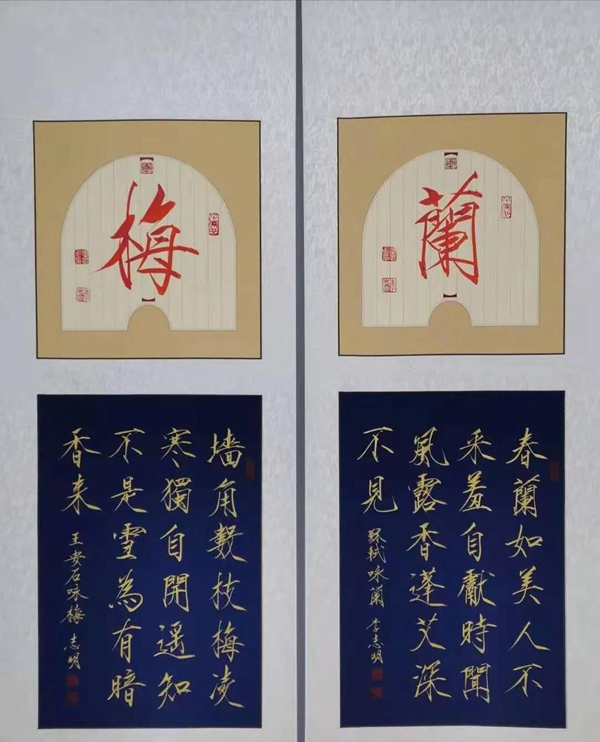 梅
墙角數枝梅凌
寒獨自開遥知
不是雪為有暗
香来
王安石咏梅 志明
蘭
春蘭如美人不
采羞自獻時聞
風露香蓬艾深
不見
蘇軾咏蘭 李志明